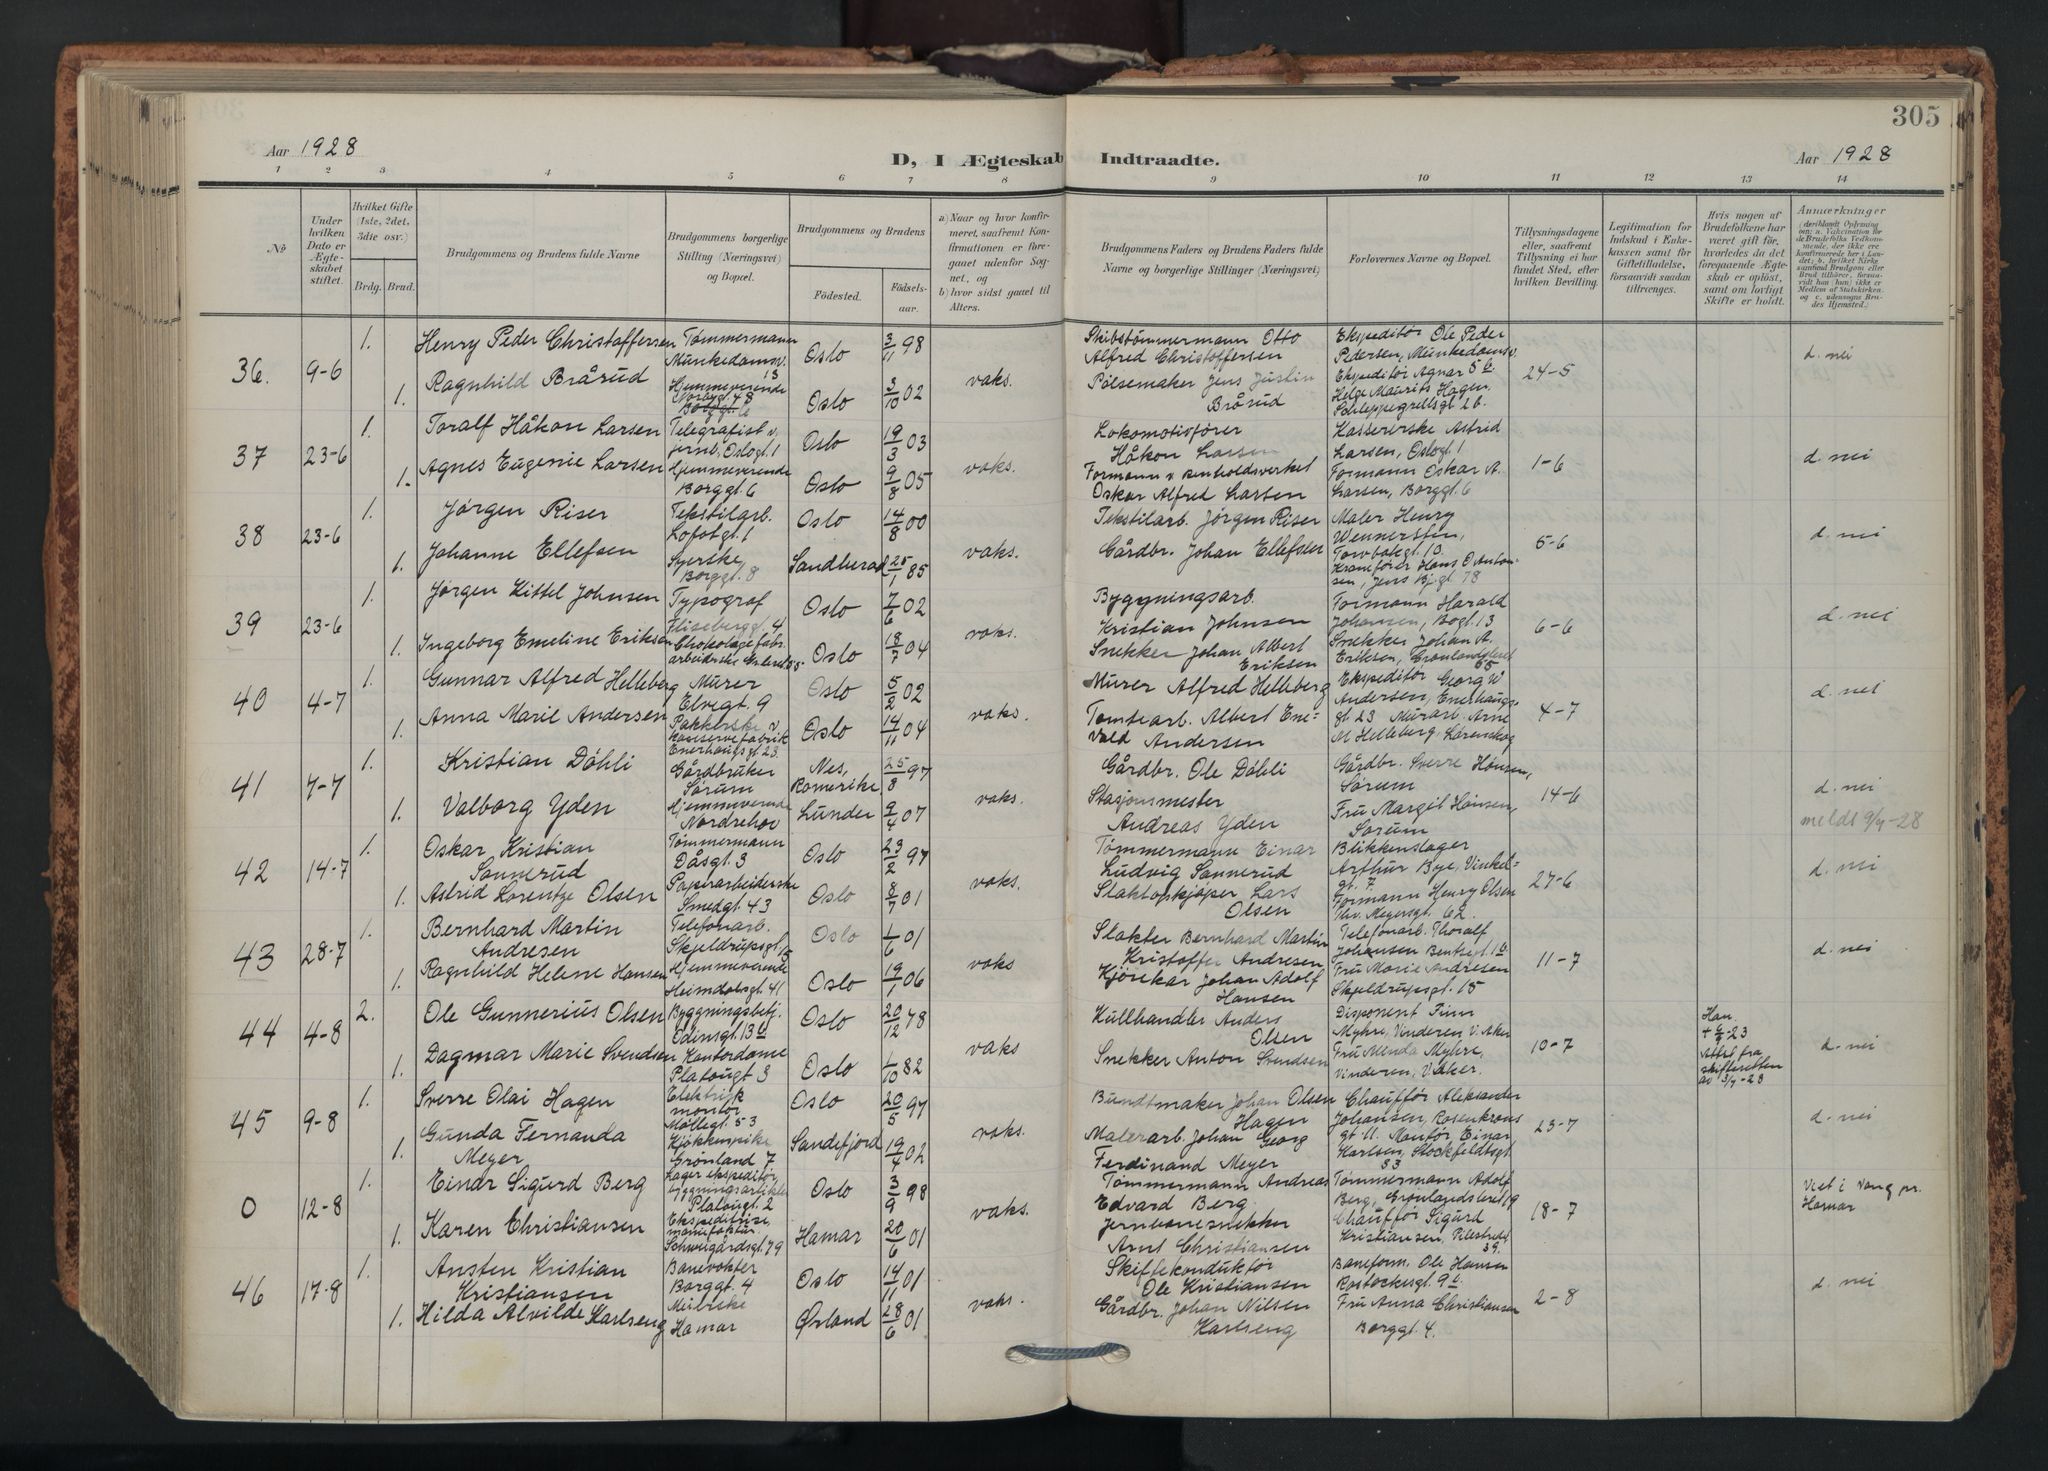 305
Aar 1928
D, I Ægteskab Indtraadte.
Aar 1928
1 2 3 4 5 6 7 8 9 10 11 12 13 14
No
Under hvilken Dato er Ægteskabet stiftet.
Hvilket Gifte (1ste, 2det, 3die osv.)
Brdg. Brud.
Brudgommens og Brudens fulde Navne
Brudgommens borgerlige Stilling (Næringsvei) og Bopæl.
Brudgommens og Brudens
Fødested. Fødselsaar.
a) Naar og hvor konfirmeret, saafremt Konfirmationen er foregaaet udenfor Sognet, og
b) hvor sidst gaaet til Alters.
Brudgommens Faders og Brudens Faders fulde Navne og borgerlige Stillinger (Næringsvei)
Forlovernes Navne og Bopæl.
Tillysningsdagene eller, saafremt Tillysning ei har fundet Sted, efter hvilken Bevilling.
Legitimation for Indskud i Enkekassen samt for Giftetilladelse, forsaavidt saadan tiltrænges.
Hvis nogen af Brudefolkene har været gift før, hvorledes da det foregaaende Ægteskab er opløst, samt om lovligt Skifte er holdt.
Anmærkninger
36. 9-6
1. Henry Peder Christoffersen Tømmermann Munkedamsv. 13 Oslo 3/11 98
1. Ragnhild Brårud Hjemmeværende Oslo 3/10 02
vaks.
Skibstømmermann Otto Alfred Christoffersen
Pølsemaker Jens Justin Brårud
Ekspeditør Ole Peder Pedersen, Munkedamsv.
Ekspeditør Agnar Helge Maurits Hagen, Schleppegrellsgt 26.
24-5
d. nei
37 23-6
1. Toralf Håkon Larsen Telegrafist v. jernb. Oslogt. 1 Oslo 19/3 03
1. Agnes Eugenie Larsen Hjemmeværende Borggt. 6 Oslo 9/8 05
vaks.
Lokomotivfører Håkon Larsen
Formann v. renholdsverket Oskar Alfred Larsen
Kassererske Astrid Larsen, Oslogt. 1
Formann Oskar A. Larsen, Borggt. 6
1-6
d. nei
38 23-6
1. Jørgen Riser Tekstilarb. Lofotgt. 1 Oslo 14/8 00
1. Johanne Ellefsen Syerske Borggt. 8 Sandherad 25/1 85
vaks.
Tekstilarb. Jørgen Riser
Gårdbr. Johan Ellefsen
Maler Henry
Kranefører Hans O Antonsen, Jens Bj.gt. 78
5-6
d. nei
39 23-6
1. Jørgen Kittel Johnsen Typograf 4 Oslo 7/6 02
1. Ingeborg Emeline Eriksen Chokoladefabr. arbeiderske Oslo 18/7 04
vaks.
Bygningsarb. Kristian Johnsen
Snekker Johan Albert Eriksen
Formann Harald Johansen, Bogt. 13
Snekker Johan A. Eriksen, Grønlandsleret 55
6-6
d. nei
40 4-7
1. Gunnar Alfred Helleberg Murer Elvegt. 9 Oslo 5/2 02
1. Anna Marie Andersen Pakkerske v. konservefabrik Enerhaugsgt. 23 Oslo 14/11 04
vaks.
Murer Alfred Helleberg
Tomtearb. Albert Enevald Andersen
Ekspeditør Georg W Andersen, Enerhaugsgt 23 Murarb. Arne M Helleberg, Lørenskog
4-7
d. nei
41 7-7
1. Kristian Döhli Gårdbruker Sørum Nes, Romerike 25/8 97
1. Valborg Yden Hjemmeværende Norderhov Lunder 9/4 07
vaks.
Gårdbr. Ole Döhli
Stasjonsmester Andreas Yden
Gårdbr. Sverre Hønsen, Sørum
Fru Margit Hønsen, Sørum
14-6
d. nei
meldt 9/7-28
42 14-7
1. Oskar Kristian Sonnerud Tømmermann Dåsgt. 3 Oslo 23/2 97
1. Astrid Lorentze Olsen Papirarbeiderske Smedgt. 43 Oslo 8/7 01
vaks.
Tømmermann Einar Ludvig Sonnerud
Slakteoppkjøper Lars Olsen
Blikkenslager Arthur Bye, Vinkelgt. 7.
Formann Henry Olsen Thv. Meyersgt. 62.
27-6
d. nei
43 28-7
1. Bernhard Martin Andresen Telefonarb. Skjeldrupsgt. 15 Oslo 1/6 01
1. Ragnhild Helene Hansen Hjemmeværende Heimdalsgt. 41 Oslo 19/1 06
vaks
Slakter Bernhard Martin Kristoffer Andresen
Kjørekar Johan Adolf Hansen
Telefonarb. Thoralf Johansen Bentsegt. 16
Fru Marie Andresen Skjeldrupsgt. 15
11-7
d. nei
44 4-8
2. Ole Gunnerius Olsen Bygningsbetj. Odinsgt. 13b Oslo 20/12 78
1. Dagmar Marie Svendsen Kontordame Platougt 3 Oslo 1/10 82
vaks
Kullhandler Anders Olsen
Snekker Anton Svendsen
Disponent Finn Myhre, Vinderen V. Aker
Fru Menda Myhre, Vinderen, V. Aker.
10-7
Han.
Attest fra skifteretten av 3/7-28
d. nei
45 9-8
1. Sverre Olai Hagen Elektrisk montør Møllegt. 53 Oslo 20/5 97
1. Gunda Fernanda Meyer Kjøkkenpike Grønland 7 Sandefjord 19/4 02
vaks.
Bundtmaker Johan Olsen Hagen
Malerarb. Johan Georg Ferdinand Meyer
Chauffør Aleksander Johansen, Rosenkransgt. 11. Montør Einar Karlsen, Stockfeldtsgt. 33
23-7
d. nei
0 12-8
1. Einar Sigurd Berg Lagerekspeditør bygningsartikler Platougt. 2 Oslo 3/9 98
1. Karen Christiansen Ekspeditrise, manufaktur Schweigårdsgt. 79 Hamar 20/6 01
vaks.
Tømmermann Andreas Edvard Berg
Jernbanesnekker Arnt Christiansen
Tømmermann Adolf Berg, Grønlandsleret 19
Chauffør Sigurd Kristiansen, Pilestredet 39.
18-7
Viet i Vang pr. Hamar
46 17-8
1. Ansten Kristian Kristiansen Banevokter Borggt. 4 Oslo 14/11 01
1. Hilda Alvilde Karlseng Meierske Hamar Ørland 28/6 01
vaks.
Skiftekonduktør Ole Kristiansen
Gårdbr. Johan Nilsen Karlseng
Baneform. Ole Hansen Rostocksgt. 9b.
Fru Anna Christiansen Borggt. 4.
2-8
d. nei